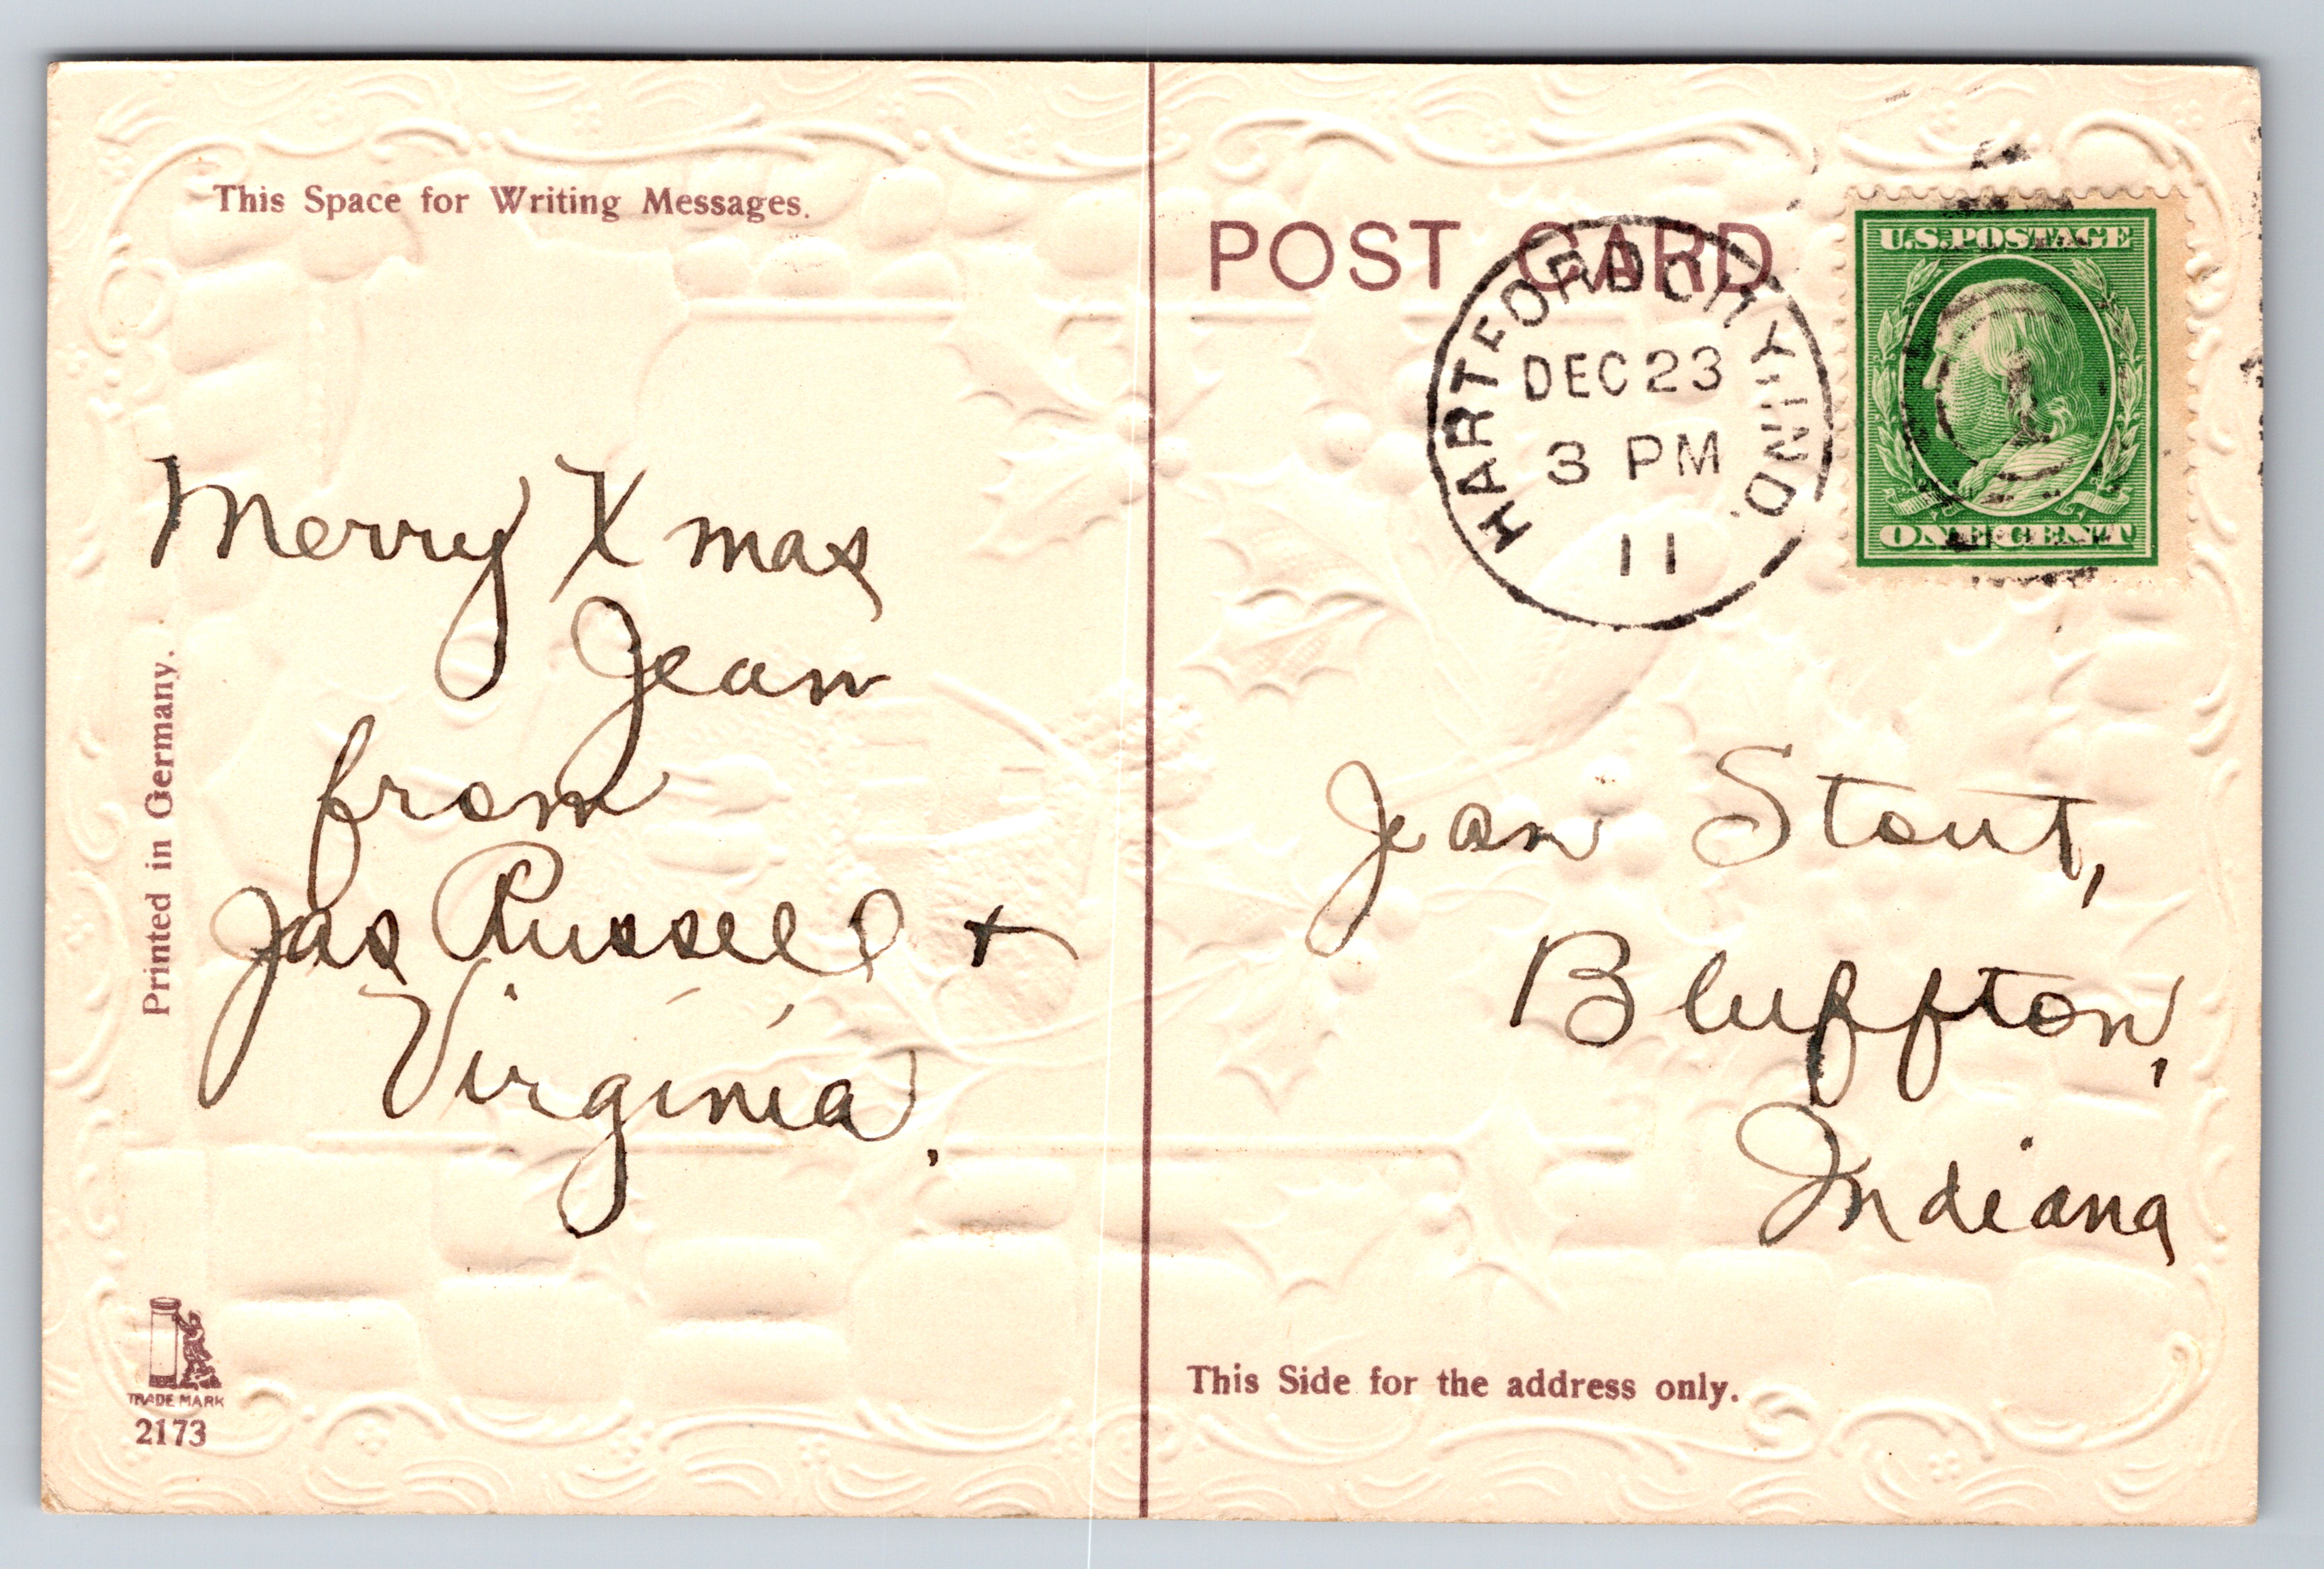 This Space for Writing Messages.
Merry Xmas
Jean
from
Jas Russell +
Virginia.
Printed in Germany.
TRADE MARK
2173
POST CARD
HARTFORD CITY, IND.
DEC 23
3 PM
11
U.S. POSTAGE
1
ONE CENT
Jean Stout,
Bluffton,
Indiana
This Side for the address only.